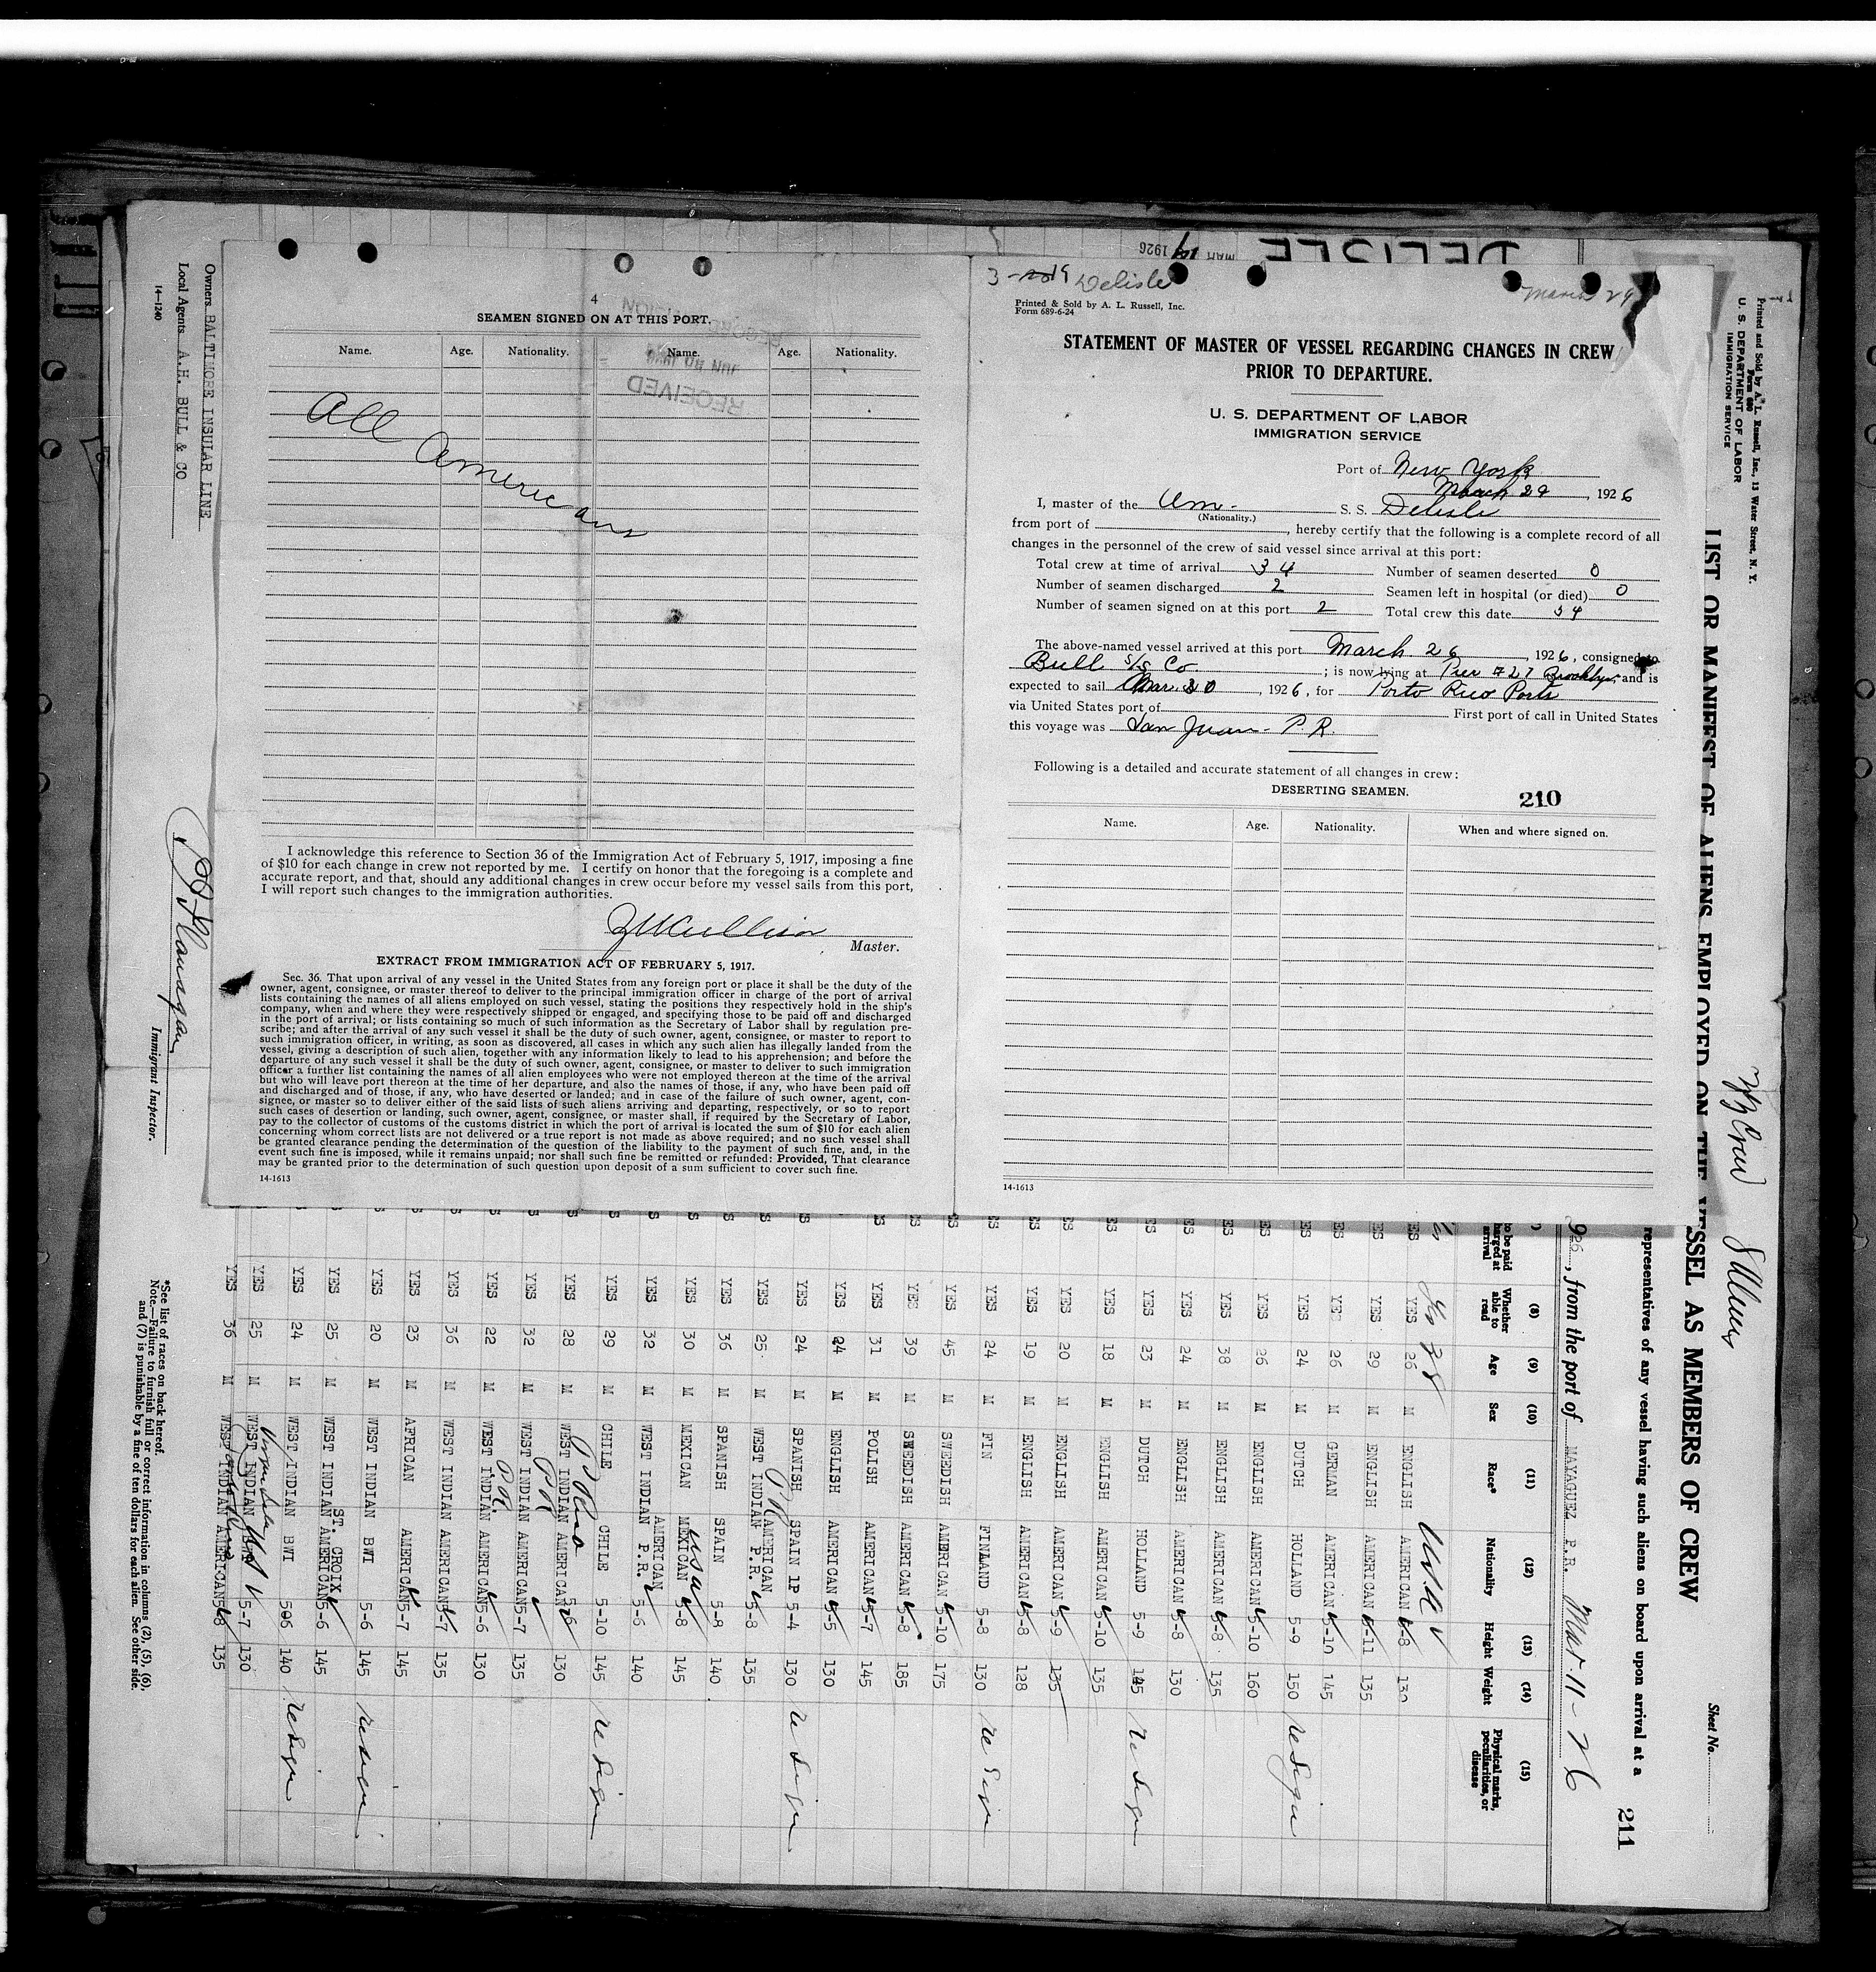 4
SEAMEN SIGNED ON AT THIS PORT.
Name. Age. Nationality. Name. Age. Nationality.
RECEIVED
All Americans
I acknowledge this reference to Section 36 of the Immigration Act of February 5, 1917, imposing a fine
of $10 for each change in crew not reported by me. I certify on honor that the foregoing is a complete and
accurate report, and that, should any additional changes in crew occur before my vessel sails from this port,
I will report such changes to the immigration authorities.
Master.
EXTRACT FROM IMMIGRATION ACT OF FEBRUARY 5, 1917.
Sec. 36. That upon arrival of any vessel in the United States from any foreign port or place it shall be the duty of the
owner, agent, consignee, or master thereof to deliver to the principal immigration officer in charge of the port of arrival
lists containing the names of all aliens employed on such vessel, stating the positions they respectively hold in the ship's
company, when and where they were respectively shipped or engaged, and specifying those to be paid off and discharged
in the port of arrival; or lists containing so much of such information as the Secretary of Labor shall by regulation pre-
scribe; and after the arrival of any such vessel it shall be the duty of such owner, agent, consignee, or master to report to
such immigration officer, in writing, as soon as discovered, all cases in which any such alien has illegally landed from the
vessel, giving a description of such alien, together with any information likely to lead to his apprehension; and before the
departure of any such vessel it shall be the duty of such owner, agent, consignee, or master to deliver to such immigration
officer a further list containing the names of all alien employees who were not employed thereon at the time of the arrival
but who will leave port thereon at the time of her departure, and also the names of those, if any, who have been paid off
and discharged and of those, if any, who have deserted or landed; and in case of the failure of such owner, agent, con-
signee, or master so to deliver either of the said lists of such aliens arriving and departing, respectively, or so to report
such cases of desertion or landing, such owner, agent, consignee, or master shall, if required by the Secretary of Labor,
pay to the collector of customs of the customs district in which the port of arrival is located the sum of $10 for each alien
concerning whom correct lists are not delivered or a true report is not made as above required; and no such vessel shall
be granted clearance pending the determination of the question of the liability to the payment of such fine, and, in the
event such fine is imposed, while it remains unpaid; nor shall such fine be remitted or refunded: Provided, That clearance
may be granted prior to the determination of such question upon deposit of a sum sufficient to cover such fine.
14-1613
DELISLE
MAR 1926
Delisle
March 29
Printed & Sold by A. L. Russell, Inc.
Form 689-6-24
STATEMENT OF MASTER OF VESSEL REGARDING CHANGES IN CREW
PRIOR TO DEPARTURE.
U. S. DEPARTMENT OF LABOR
IMMIGRATION SERVICE
Port of New York
March 29, 1926
I, master of the Am. S. S. Delisle
(Nationality.)
from port of , hereby certify that the following is a complete record of all
changes in the personnel of the crew of said vessel since arrival at this port:
Total crew at time of arrival 34 Number of seamen deserted 0
Number of seamen discharged 2 Seamen left in hospital (or died) 0
Number of seamen signed on at this port 2 Total crew this date 34
The above-named vessel arrived at this port March 26, 1926, consigned to
Bull S/S Co ; is now lying at Pier #27 Brooklyn, and is
expected to sail Mar. 30, 1926, for Porto Rico Ports
via United States port of First port of call in United States
this voyage was San Juan - P.R.
Following is a detailed and accurate statement of all changes in crew:
DESERTING SEAMEN.
210
Name. Age. Nationality. When and where signed on.
14-1613
Printed and Sold by A. L. Russell, Inc., 13 Water Street, N. Y.
Form 680
U. S. DEPARTMENT OF LABOR
IMMIGRATION SERVICE
LIST OR MANIFEST OF ALIENS EMPLOYED ON THE VESSEL AS MEMBERS OF CREW
Sheet No.
211
representatives of any vessel having such aliens on board upon arrival at a
926, from the port of MAYAGUEZ P.R. Mar-11-26
to be paid
charged at
arrival
(8) Whether able to read
(9) Age
(10) Sex
(11) Race*
(12) Nationality
(13) Height
(14) Weight
(15) Physical marks, peculiarities, or disease
38 USA
YES 26 M ENGLISH AMERICAN 5-8 130
YES 29 M ENGLISH AMERICAN 5-11 135
YES 26 M GERMAN AMERICAN 5-10 145
YES 24 M DUTCH HOLLAND 5-9 150 Resign
YES 26 M ENGLISH AMERICAN 5-10 160
YES 38 M ENGLISH AMERICAN 5-8 135
YES 24 M ENGLISH AMERICAN 5-8 130
YES 23 M DUTCH HOLLAND 5-9 145 Resign
YES 18 M ENGLISH AMERICAN 5-10 135
YES 20 M ENGLISH AMERICAN 5-9 135
YES 19 M ENGLISH AMERICAN 5-8 128
YES 24 M FIN FINLAND 5-8 130 Resign
YES 45 M SWEDISH AMERICAN 5-10 175
YES 39 M SWEDISH AMERICAN 5-8 185
YES 31 M POLISH AMERICAN 5-7 145
YES 24 M ENGLISH AMERICAN 5-5 130
YES 24 M SPANISH SPAIN 1P 5-4 130 Resign
YES 25 M WEST INDIAN AMERICAN P.R. 5-8 135
YES 36 M SPANISH SPAIN 5-8 140
YES 30 M MEXICAN MEXICAN USA 5-8 145
YES 32 M WEST INDIAN AMERICAN P.R. 5-6 140
YES 29 M CHILE CHILE 5-10 145 Resign
YES 28 M WEST INDIAN AMERICAN 5-6 130
YES 32 M WEST INDIAN PR AMERICAN 5-7 135
YES 22 M WEST INDIAN PR AMERICAN 5-6 130
YES 36 M WEST INDIAN AMERICAN 5-7 135
YES 23 M AFRICAN AMERICAN 5-7 145
YES 20 M WEST INDIAN BWI 5-6 145 Resign
YES 25 M WEST INDIAN ST. CROIX AMERICAN 5-6 145
YES 24 M WEST INDIAN BWI 506 140 Resign
YES 25 M WEST INDIAN 5-7 130
YES 36 M WEST INDIAN AMERICAN 5-8 135
*See list of races on back hereof.
Note.—Failure to furnish full or correct information in columns (2), (5), (6),
and (7) is punishable by a fine of ten dollars for each alien. See other side.
Owners BALTIMORE INSULAR LINE
Local Agents A.H. BULL & CO
14-1240
Flanagan
Immigrant Inspector.